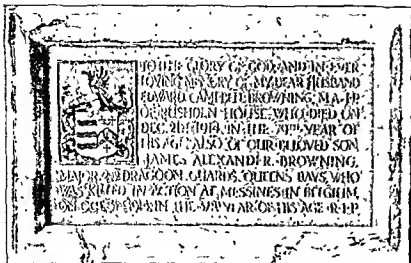 TO THE GLORY OF GOD AND IN EVER
LOVING MEMORY OF MY DEAR HUSBAND
EDWARD CAMPBELL BROWNING, M.A. J.P.
OF RUSHOLM HOUSE, WHO DIED ON
DEC. 1914, IN THE YEAR OF
HIS AGE: ALSO OF OUR BELOVED SON
JAMES ALEXANDER BROWNING,
MAJOR, 2ND DRAGOON GUARDS, QUEENS BAYS, WHO
WAS KILLED IN ACTION AT MESSINES IN BELGIUM,
1914 IN THE YEAR OF HIS AGE R.I.P.